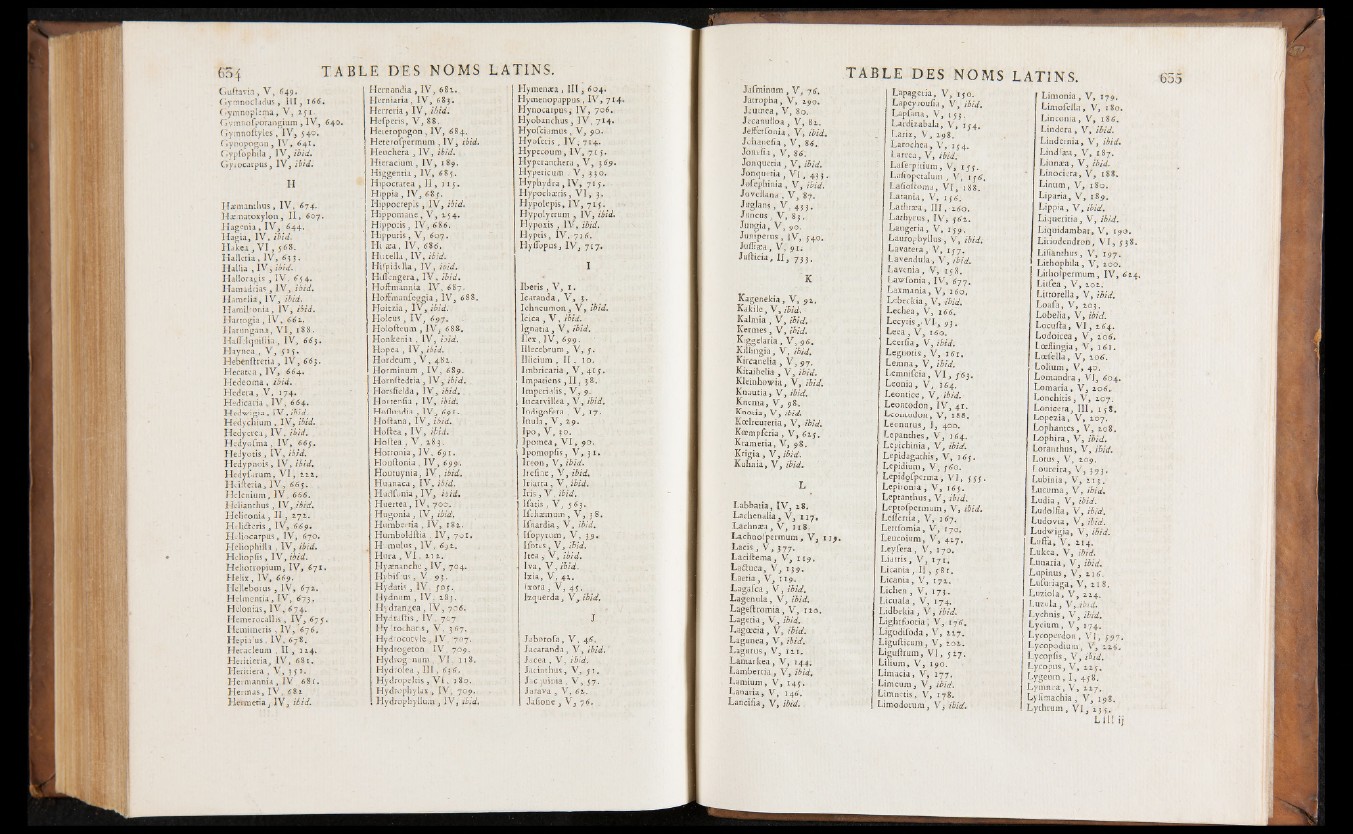 634 TABLE DES NOMS LATINS.
Guſtavia, V, 649.
Gymnocladus, III, 166.
Gymnoſtyles, IV, 540.
Gynopogon, IV, 641.
Gypſophila, IV, ibid.
Gyrocarpus, IV, ibid.
H
Hæmanthus, IV, 674.
Hæmatoxylon, II, 607.
Hagenia, IV, 644.
Hagia, IV, ibid.
Hakea, VI, 568.
Halleria, IV, 633.
Hallia, IV, ibid.
Halloragis, IV, 654.
Hamadrias, IV, ibid.
Hamelia, IV, ibid.
Hamiltonia, IV, ibid.
Hartogia, IV, 662.
Harongana, VI, 188.
Haynea, V, 515.
Hebenſtretia, IV, 663.
Hecatea, IV, 664.
Hedeoma, ibid.
Hedera, V, 174.
Hedicaria, IV, 664.
Hedwigia, IV, ibid.
Hedychium, IV, ibid.
Hedycrea, IV, ibid.
Hedyoſma, IV, 665.
Hedyotis, IV, ibid.
Hedypnois, IV, ibid.
Hedyſarum, VI, 222.
Heiſteria, IV, 665.
Helenium, IV, 666.
Helianthus, IV, ibid.
Heliconia, II, 272.
Helicteris, IV, 669.
Heliocarpus, IV, 670.
Heliophilla, IV, ibid.
Heliopſis, IV, ibid.
Heliotropium, IV, 671.
Helix, IV, 669.
Helleborus, IV, 672.
Helmentia, IV, 673.
Helonias, IV, 674.
Hemerocallis, IV, 675.
Hemimeris, IV, 676.
Heracleum, II, 124.
Heritieria, IV, 681.
Heritiera, V, 352.
Hermannia, IV, 681.
Hermas, IV, 682.
Hermetia, IV, ibid.
Hernandia, IV, 682.
Herniaria, IV, 683.
Herreria, IV, ibid.
Heſperis, V, 88.
Heteropogon, IV, 684.
Heteroſpermum, IV, ibid.
Heuchera, IV, ibid.
Hieracium, IV, 189.
Higgenſia, IV, 685.
Hipocratea, II, 115.
Hippia, IV, 685.
Hippocrepis, IV, ibid.
Hippomane, V, 254.
Hippotis, IV, 686.
Hippuris, V, 607.
Hirtella, IV, ibid.
Hiſpidella, IV, ibid.
Hoffmannia, IV, 687.
Hoffmanſeggia, IV, 688.
Hoitzia, IV, ibid.
Holcus, IV, 697.
Holoſteum, IV, 688.
Honkenia, IV, ibid.
Hopea, IV, ibid.
Hordeum, V, 482.
Horminum, IV, 689.
Hornſtedtia, IV, ibid.
Horsfielda, IV, ibid.
Hortenſia, IV, ibid.
Hoſlundia, IV, 691.
Hoſtana, IV, ibid.
Hoſtea, IV, ibid.
Hoſtea, V, 283.
Hottonia, IV, 691.
Houſtonia, IV, 699.
Houtuynia, IV, ibid.
Huanaca, IV, ibid.
Hudſonia, IV, ibid.
Huertea, IV, 700.
Hugonia, IV, ibid.
Humbertia, IV, 182.
Humboldtia, IV, 701.
Humulus, IV, 632.
Hura, VI, 212.
Hyænanche, IV, 704.
Hybiſcus, V, 93.
Hydatis, IV, 505.
Hydnum, IV, 283.
Hydrangea, IV, 706.
Hydraſtis, IV, 707.
Hydrocharis, V, 367.
Hydrocotyle, IV, 707.
Hydrogeton, IV, 709.
Hydrolea, III, 636.
Hydropeltis, VI, 280.
Hydrophylax, IV, 709.
Hydrophyllum, IV, ibid.
Hymenæa, III, 604.
Hymenopappus, IV, 714.
Hynocarpus, IV, 706.
Hyobanchus, IV, 714.
Hyoſciamus, V, 90.
Hyoſeris, IV, 714.
Hypecoum, IV, 715.
Hyperanthera, V, 369.
Hypericum, V, 330.
Hyphydra, IV, 715.
Hypochæris, VI, 3.
Hypolepis, IV, 715.
Hypolytrum, IV, ibid.
Hypoxis, IV, ibid.
Hyptis, IV, 716.
Hyſſopus, IV, 717.
I
Iberis, V, 1.
Icaranda, V, 3.
Ichneumon, V, ibid.
Icica, V, ibid.
Ignatia, V, ibid.
Ilex, IV, 699.
Illecebrum, V, 5.
Illicium, II, 10.
Imbricaria, V, 415.
Impatiens, II, 38.
Imperialis, V, 9.
Incarvillea, V, ibid.
Indigofera, V, 17.
Inula, V, 29.
Ipo, V, 30.
Ipomea, VI, 90.
Ipomopſis, V, 31.
Ireon, V, ibid.
Ireſine, V, ibid.
Iriarta, V, ibid.
Iris, V, ibid.
Iſatis, V, 563.
Iſchæmum, V, 38.
Iſnardia, V, ibid.
Iſopyrum, V, 39.
Iſotus, V, ibid.
Itea, V, ibid.
Iva, V, ibid.
Ixia, V, 42.
Ixora, V, 45.
Izquerda, V, ibid.
J
Jaboroſa, V, 46.
Jacaranda, V, ibid.
Jacea, V, ibid.
Jacinthus, V, 51.
Jacquinia, V, 57.
Jarava, V, 62.
Jaſione, V, 76.
TABLE DES NOMS LATINS. 635
Jaſminum, V, 76.
Jatropha, V, 290.
Jaumea, V, 80.
Jecanulloa, V, 82.
Jefferſonia, V, ibid.
Johaneſia, V, 86.
Jonſia, V, 86.
Jonquetia, V, ibid.
Jonquetia, VI, 433.
Joſephinia, V, ibid.
Jovellana, V, 87.
Juglans, V, 433.
Juncus, V, 83.
Jungia, V, 90.
Juniperus, IV, 540.
Juſſiæa, V, 91.
Juſticia, II, 733.
K
Kagenekia, V, 92.
Kakile, V, ibid.
Kalmia, V, ibid.
Kermes, V, ibid.
Kiggelaria, V, 96.
Killingia, V, ibid.
Kirganelia, V, 97.
Kitaibelia, V, ibid.
Kleinhowia, V, ibid.
Knautia, V, ibid.
Knema, V, 98.
Knoxia, V, ibid.
Kœlreuteria, V, ibid.
Kœmpferia, V, 625.
Krameria, V, 98.
Krigia, V, ibid.
Kuhnia, V, ibid.
L
Labbatia, IV, 28.
Lachenalia, V, 117.
Lachnæa, V, 118.
Lachnoſpermum, V, 119.
Lacis, V, 377.
Laciſtema, V, ibid.
Lactuca, V, 139.
Laetia, V, 119.
Lagaſca, V, ibid.
Lagenula, V, ibid.
Lageſtromia, V, 120.
Lagetta, V, ibid.
Lagœcia, V, ibid.
Lagunea, V, ibid.
Lagurus, V, 121.
Lamarkea, V, 144.
Lambertia, V, ibid.
Lamium, V, 145.
Lanaria, V, 146.
Lanciſia, V, ibid.
Lapageria, V, 150.
Lapeyrouſia, V, ibid.
Lapſana, V, 153.
Lardizabala, V, 154.
Larix, V, 298.
Larochea, V, 154.
Larrea, V, ibid.
Laſerpitium, V, 155.
Laſiopetalum, V, 156.
Laſioſtoma, VI, 188.
Latania, V, 156.
Lathræa, III, 260.
Lathyrus, IV, 562.
Laugeria, V, 159.
Laurophyllus, V, ibid.
Lavatera, V, 157.
Lavendula, V, ibid.
Lavenia, V, 158.
Lawſonia, IV, 677.
Laxmania, V, 160.
Lebeckia, V, ibid.
Lechea, V, 166.
Lecytis, VI, 93.
Leea, V, 160.
Leerſia, V, ibid.
Legnotis, V, 161.
Lemna, V, ibid.
Lemniſcia, VI, 563.
Leonia, V, 164.
Leontice, V, ibid.
Leontodon, IV, 41.
Leontodon, V, 188.
Leonurus, I, 400.
Lepanthes, V, 164.
Lepichinia, V, ibid.
Lepidagathis, V, 165.
Lepidium, V, 560.
Lepidoſperma, VI, 555.
Lepironia, V, 165.
Lepranthus, V, ibid.
Leptoſpermum, V, ibid.
Leſſertia, V, 167.
Lettſomia, V, 170.
Leucoium, V, 427.
Leyſera, V, 170.
Liatris, V, 171.
Licania, II, 581.
Licania, V, 172.
Lichen, V, 173.
Licuala, V, 174.
Lidbekia, V, ibid.
Lightfootia, V, 176.
Ligodiſoda, V, 227.
Liguſticum, V, 202.
Liguſtrum, VI, 527.
Lilium, V, 190.
Limacia, V, 177.
Limeum, V, ibid.
Limnetis, V, 178.
Limodorum, V, ibid.
Limonia, V, 179.
Limoſella, V, 180.
Linconia, V, 186.
Lindera, V, ibid.
Lindernia, V, ibid.
Lindſæa, V, 187.
Linnæa, V, ibid.
Linociera, V, 188.
Linum, V, 180.
Liparia, V, 189.
Lippia, V, ibid.
Liqueritia, V, ibid.
Liquidambar, V, 190.
Liriodendron, VI, 538.
Liſianthus, V, 197.
Lithophila, V, 200.
Lithoſpermum, IV, 624.
Litſea, V, 202.
Littorella, V, ibid.
Loaſa, V, 203.
Lobelia, V, ibid.
Locuſta, VI, 264.
Lodoicea, V, 206.
Lœflingia, V, 161.
Lœſella, V, 206.
Lolium, V, 40.
Lomandra, VI, 604.
Lomaria, V, 206.
Lonchitis, V, 207.
Lonicera, III, 158.
Lopezia, V, 207.
Lophantes, V, 208.
Lophira, V, ibid.
Loranthus, V, ibid.
Lotus, V, 209.
Loureira, V, 393.
Lubinia, V, 213.
Lucuma, V, ibid.
Ludia, V, ibid.
Ludolfia, V, ibid.
Ludovia, V, ibid.
Ludwigia, V, ibid.
Luffa, V, 214.
Luhea, V, ibid.
Lunaria, V, ibid.
Lupinus, V, 216.
Luſuriaga, V, 218.
Luziola, V, 224.
Luzula, V, ibid.
Lychnis, V, ibid.
Lycium, V, 174.
Lycoperdon, VI, 597.
Lycopodium, V, 226.
Lycopſis, V, ibid.
Lycopus, V, 225.
Lygeum, I, 458.
Lymnea, V, 227.
Lyſimachia, V, 198.
Lythrum, VI, 235.
L l l l ij